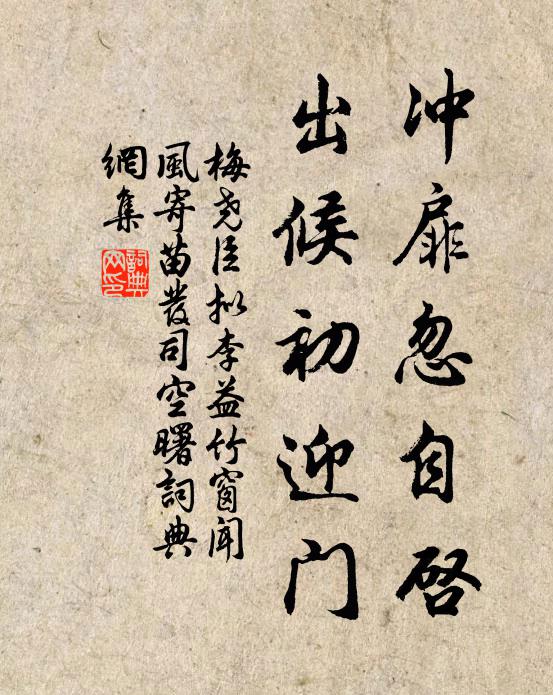 冲扉忽自启
出候初迎门
梅尧臣拟李益竹窗闻
風寄苗發司空曙詞典
網集
詞典
网印